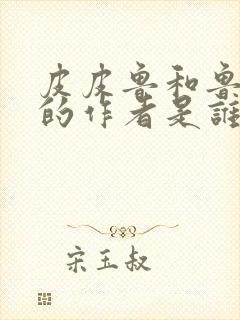 皮皮鲁和鲁
的作者是誰
宋玉叔